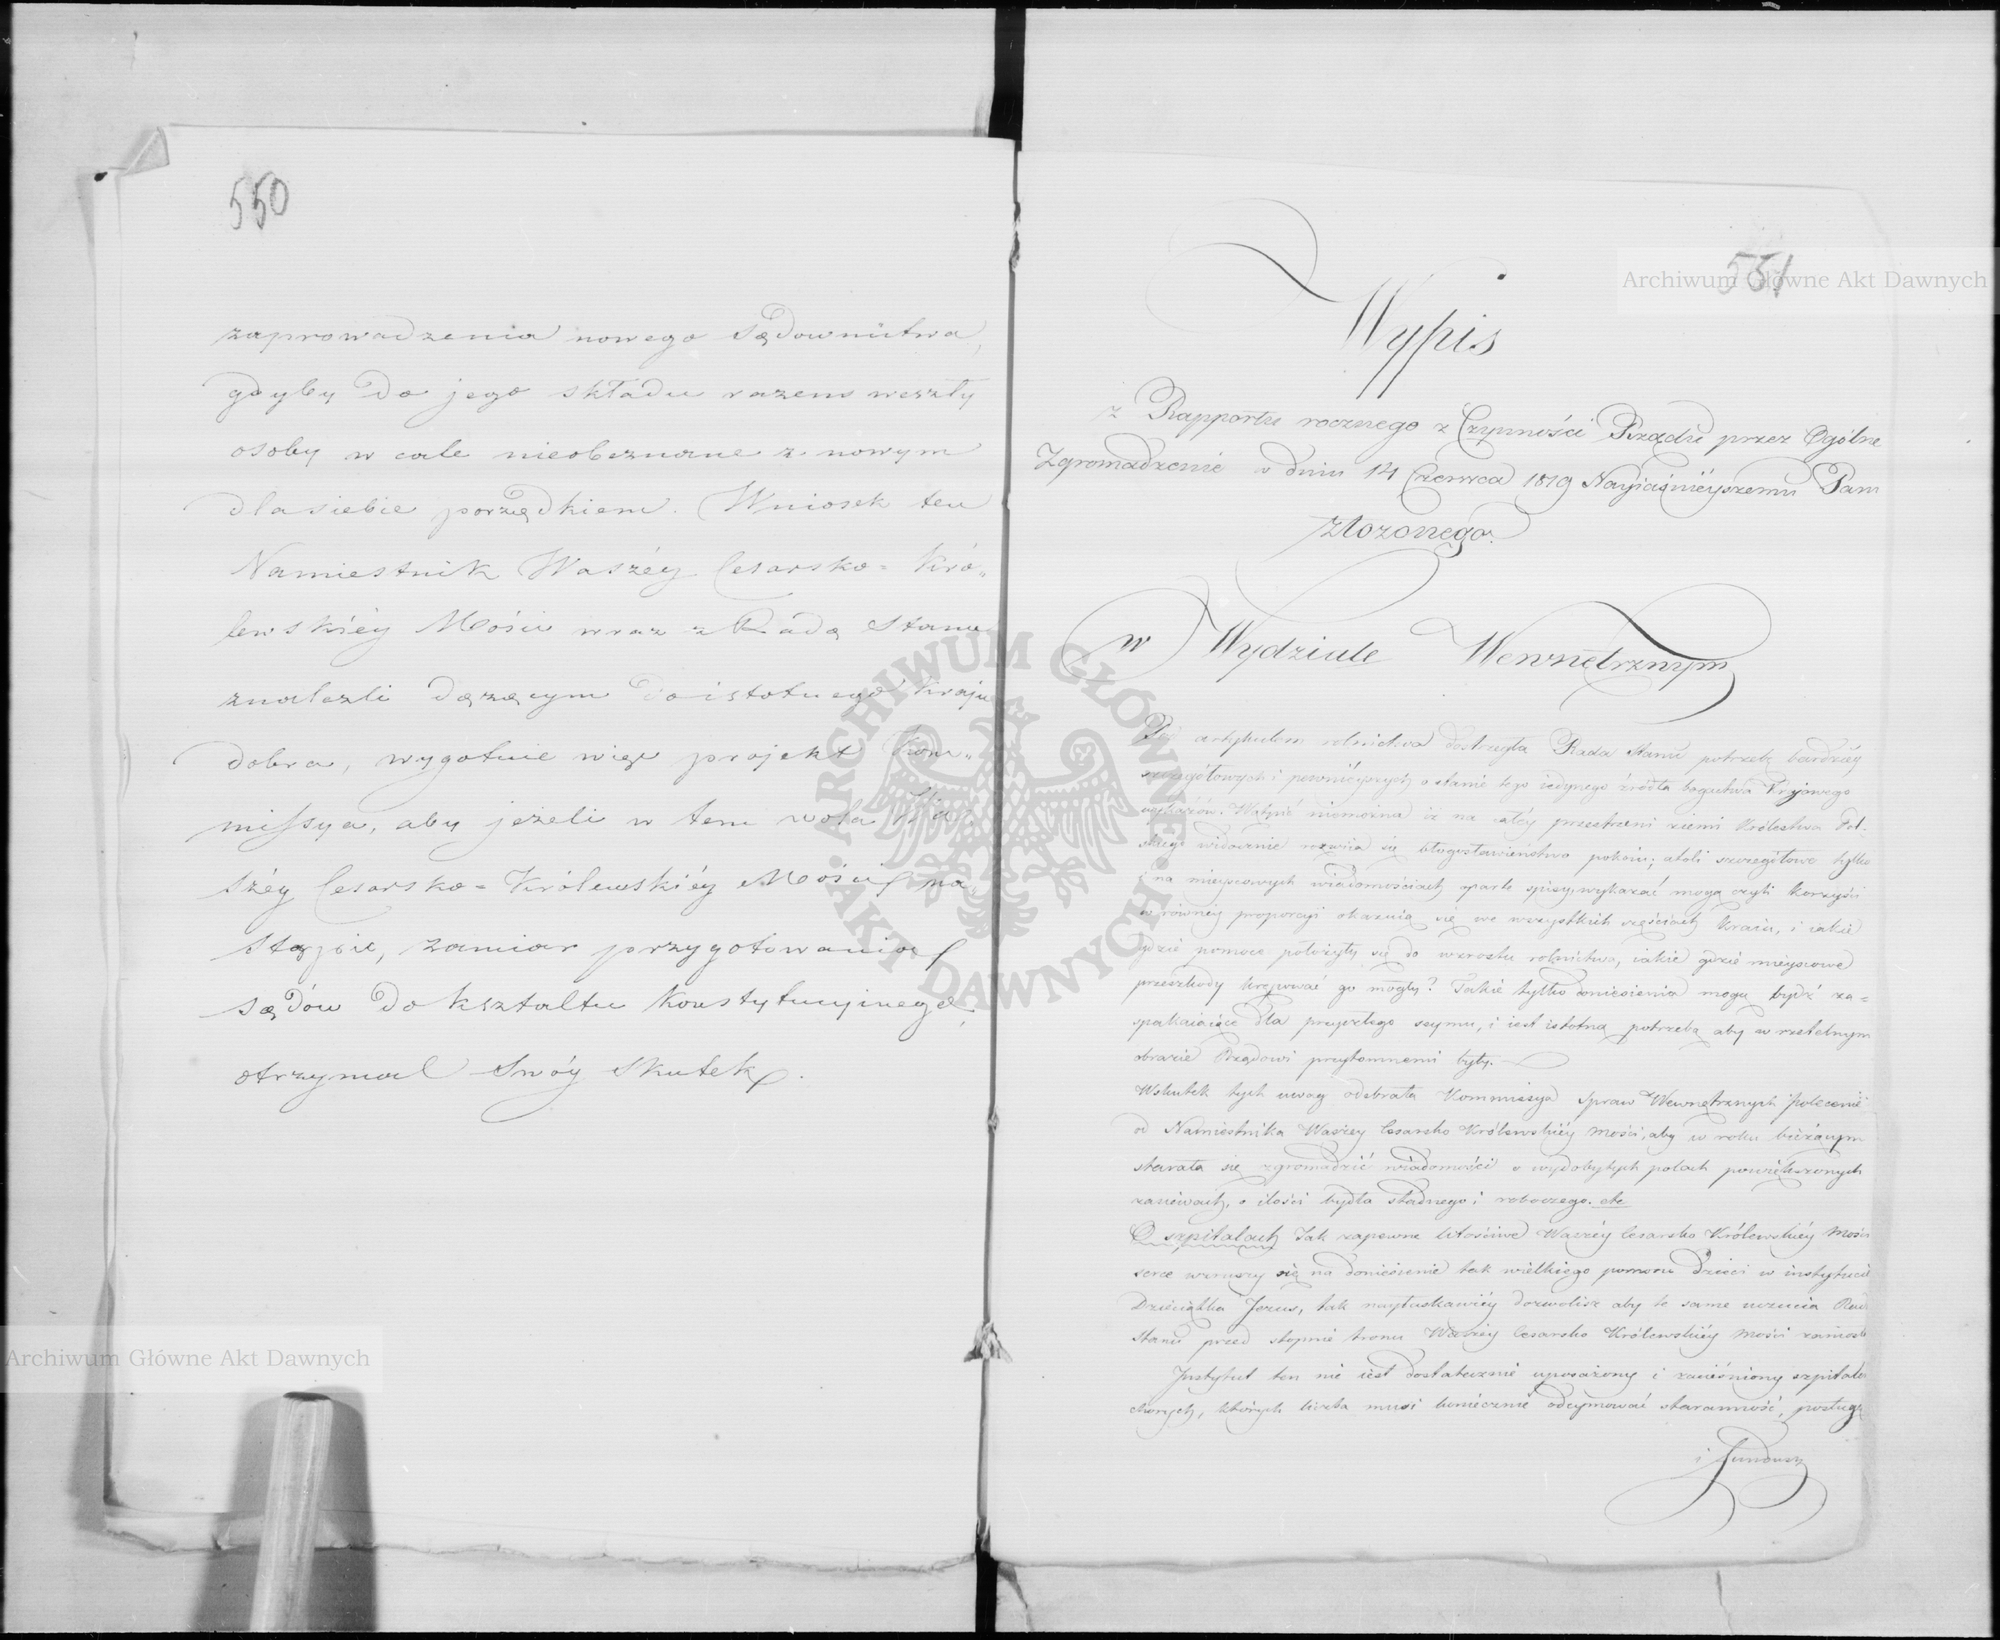 550
zaprowadzenia nowego Sądownictwa,
gdyby do jego składu razem weszły
osoby w cale nieobeznane z nowym
dla siebie porządkiem. Wniosek ten
Namiestnik Waszéy Cesarsko = Kró„
lewskiéy Mości wraz z Radą Stanu
znalezli dążącym do istotnego kraju
dobra, wygotuie więc projekt Kom„
missya, aby jeżeli w tem wola Wa„
széy Cesarsko = Królewskiéy Mości na„
stąpi, zamiar przygotowania
sądów do kształtu Konstytucyinego,
otrzymał swóy skutek.
551
Wypis
z Rapportu rocznego z Czynności Rządu przez Ogólne
Zgromadzenie w dniu 14 Czerwca 1819 Nayiaśnieyszemu Panu
złożonego.
w Wydziale Wewnętrznym
Pod artykułem rolnictwa dostrzegła Rada Stanu potrzebę bardziéy
szczegółowych i pewnieyszych o stanie tego iedynego źródła bogactwa Krajowego
wykazów. Wątpić niemożna iż na całéy przestrzeni ziemi Królestwa Pol-
skiego widocznie rozwiia się błogosławieństwo pokoiu; atoli szczegółowe tylko
i na mieyscowych wiadomościach oparte spisy, wykazać mogą czyli korzyści
w równéy proporcyi okazuią się we wszystkich częściach Kraiu, i iakie
gdzie pomoce położyły się do wzrostu rolnictwa, iakie gdzie mieyscowe
przeszkody krępować go mogły? Takie tylko doniesienia mogą bydź za=
spakaiaiące dla przyszłego seymu, i iest istotną potrzebą aby w rzetelnym
obrazie Rządowi przytomnemi były.
Wskutek tych uwag odebrała Kommissya Spraw Wewnętrznych polecenie
od Namiestnika Waszéy Cesarsko Królewskiéy Mości, aby w roku bieżącym
starała się zgromadzić wiadomości o wydobytych polach powiększonych
zasiewach, o ilości bydła stadnego i roboczego. etc
O szpitalach Jak zapewne litościwe Waszéy Cesarsko Królewskiéy Mości
serce wzruszy się na doniesienie tak wielkiego pomoru dzieci w instytucie
Dzieciątka Jezus, tak nayłaskawiéy dozwolisz aby te same uczucia Rada
Stanu przed stopnie tronu Waszéy Cesarsko Królewskiéy Mości zaniosła
Instytut ten nie iest dostatecznie uposażony i zacieśniony szpitalem
chorych, których liczba musi koniecznie odeymować staranność, posługę
i fundusz
Archiwum Główne Akt Dawnych
Archiwum Główne Akt Dawnych
ARCHIWUM GŁÓWNE AKT DAWNYCH